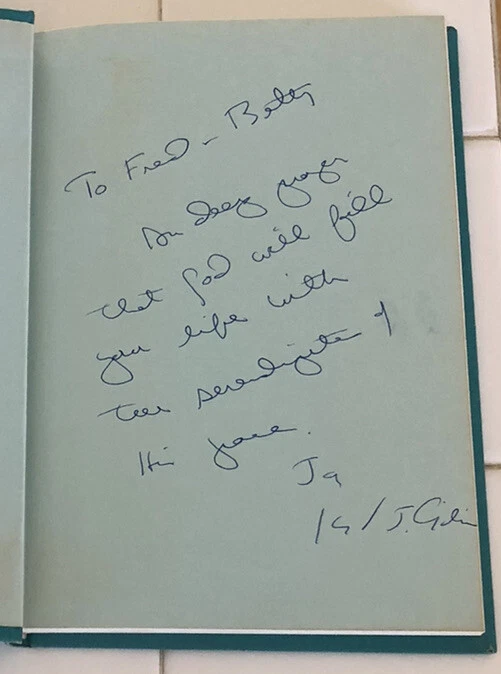 To Fred - Betty
In deep prayer
that God will fill
your life with
the serendipities of
His grace.